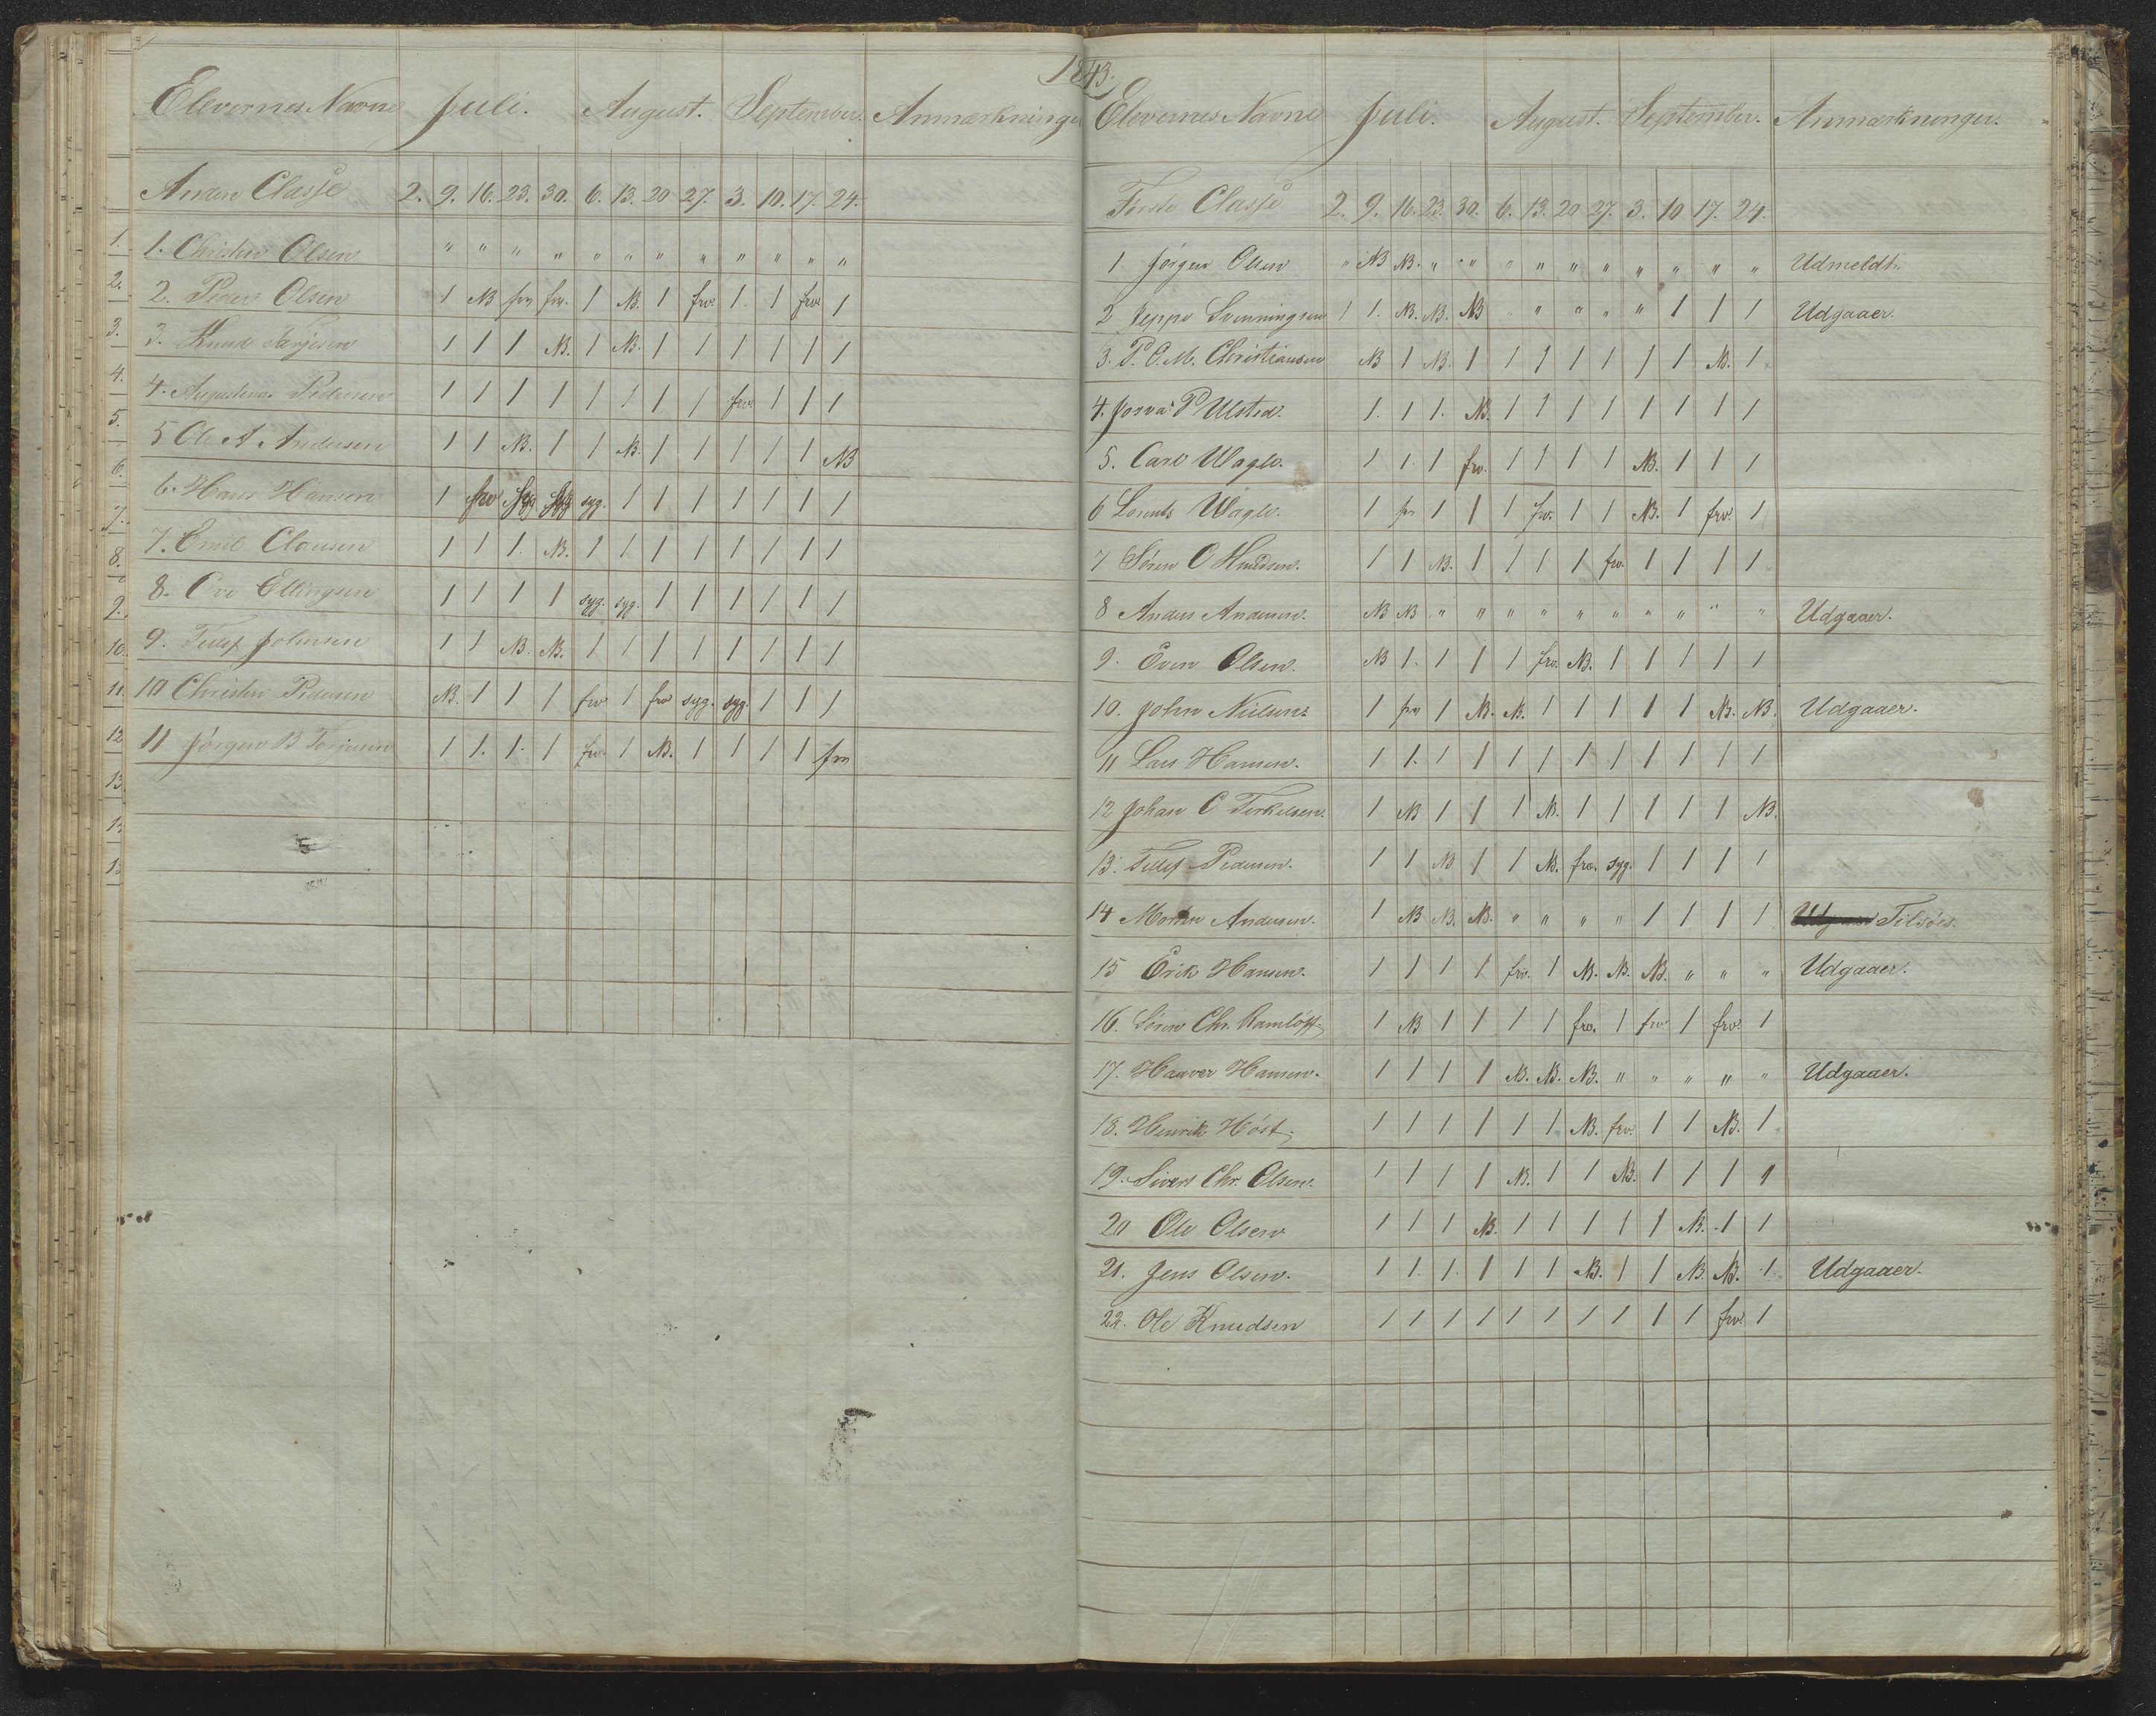 1843.
Elevernes Navne Juli. August. September. Anmærkninger
Anden Classe 2. 9. 16. 23. 30. 6. 13. 20 27. 3. 10. 17. 24.
1. Christen Olsen " " " " " " " " " " " "
2. Peder Olsen 1 NB frv frv. 1 NB. 1 frv. 1. 1 frv. 1
3. Knud Tarjesen 1 1 1 NB. 1 NB. 1 1 1 1 1 1
4. Augustinus Pedersen 1 1 1 1 1 1 1 1 frv. 1 1 1
5 Ole A Andersen 1 1 NB. 1 1 NB. 1 1 1 1 1 NB
6. Hans Hansen 1 frv syg syg syg. 1 1 1 1 1 1 1
7. Emil Clausen 1 1 1. NB. 1 1 1 1 1 1 1 1
8. Ove Ellingsen 1 1 1 1 syg. syg. 1 1 1 1 1 1
9. Tellef Johnsen 1 1 NB. NB. 1 1 1 1 1 1 1 1
10 Christen Pedersen NB. 1 1 1 frv. 1 frv syg. syg. 1 1 1
11 Jørgen B Terjesen 1 1. 1. 1 frv. 1 NB. 1 1 1 1 frv
1.
2.
3.
4.
5.
6.
7.
8.
9.
10
11.
12
13.
Elevernes Navne Juli. August. September. Anmærkninger.
Første Classe 2. 9. 16. 23. 30. 6. 13. 20 27. 3. 10 17. 24.
1 Jørgen Olsen " NB NB. " " " " " " " " " " Udmeldt.
2 Jeppe Svenningsen 1 1. NB. NB. NB " " " " " 1 1 1 Udgaaer.
3. P. C. M. Christiansen NB 1 NB. 1 1 1 1 1 1 1 NB. 1
4. Josva P Ulsted. 1. 1 1. NB. 1 1 1 1 1 1 1 1
5. Carl Wagle. 1 1. 1 frv. 1 1 1 1 NB. 1 1 1
6 Lorents Wagle. 1 frv 1 1 1 frv. 1 1 NB. 1 frv. 1
7 Søren O Knudsen. 1 1 NB. 1 1 1 1 frv. 1 1 1 1
8 Anders Andersen. NB NB. " " " " " " " " " " Udgaaer.
9. Even Olsen. NB 1. 1 1 1 frv. NB. 1 1 1 1 1
10. John Nielsen. 1 frv 1 NB. NB. 1 1 1 1 1 NB. NB. Udgaaer.
11 Lars Hansen. 1 1. 1 1 1 1 1 1 1 1 1 1
12 Johan C Terkelsen. 1 NB 1 1 1 NB. 1 1 1 1 1 NB.
13. Tellef Pedersen. 1 1 NB 1 1 NB. frv. syg. 1 1 1 1
14 Morten Andersen. 1 NB NB. NB. " " " " 1 1 1 1 Tilsøes.
15 Erik Hansen. 1 1 1 1 frv. 1 NB. NB. NB. " " " Udgaaer.
16. Søren Chr. Ramløff. 1 NB 1 1 1 1 frv. 1 frv 1 frv. 1
17. Haaver Hansen. 1 1 1 1 NB. NB. NB. " " " " " Udgaaer.
18. Henrik Høst. 1 1 1 1 1 1. NB. frv. 1 1 NB. 1
19. Sivert Chr. Olsen. 1 1 1 1 NB. 1 1 NB. 1 1 1 1
20 Ole Olsen 1 1 1 NB. 1 1 1 1 1 NB. 1 1
21. Jens Olsen. 1 1. 1. 1 1 1 NB. 1 1 NB. NB. 1 Udgaaer.
22. Ole Knudsen 1 1 1 1 1 1 1 1 1 1 frv 1